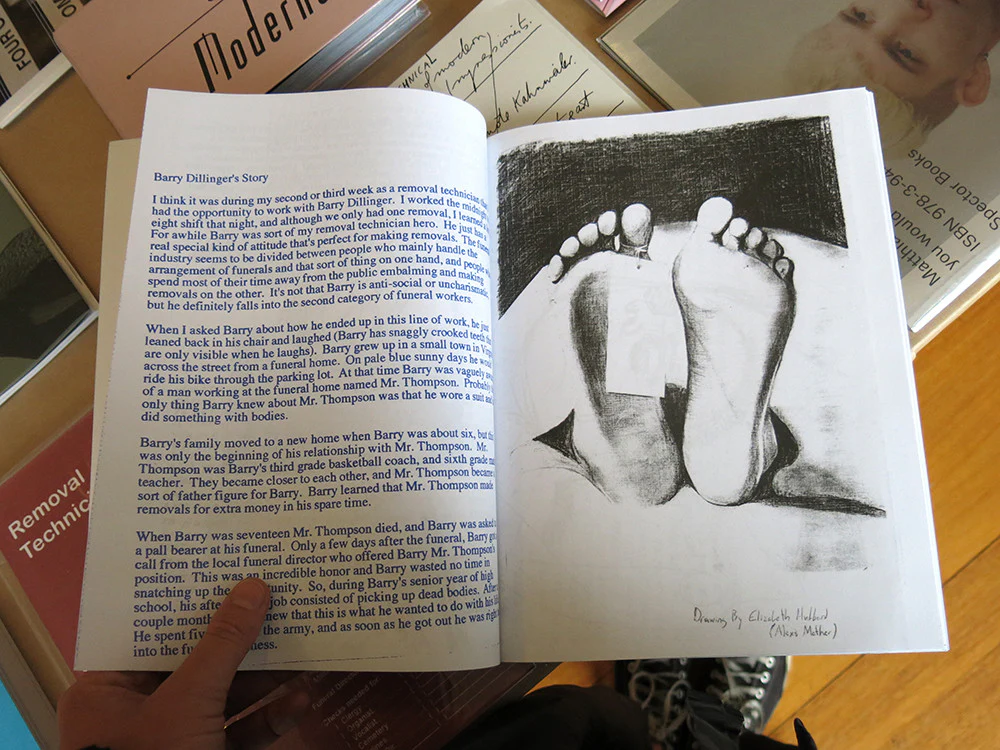 FOUR
Modern
of modern
Kahnweiler.
Spector Books
ISBN 978-3-94
you would
Matth
Barry Dillinger's Story
I think it was during my second or third week as a removal technician
had the opportunity to work with Barry Dillinger. I worked the
eight shift that night, and although we only had one removal, I learned
For awhile Barry was sort of my removal technician hero. He just has
real special kind of attitude that's perfect for making removals. The
industry seems to be divided between people who mainly handle the
arrangement of funerals and that sort of thing on one hand, and people
spend most of their time away from the public embalming and making
removals on the other. It's not that Barry is anti-social or uncharismatic
but he definitely falls into the second category of funeral workers.
When I asked Barry about how he ended up in this line of work, he just
leaned back in his chair and laughed (Barry has snaggly crooked teeth
are only visible when he laughs). Barry grew up in a small town in
across the street from a funeral home. On pale blue sunny days he
ride his bike through the parking lot. At that time Barry was vaguely
of a man working at the funeral home named Mr. Thompson. Probably
only thing Barry knew about Mr. Thompson was that he wore a suit and
did something with bodies.
Barry's family moved to a new home when Barry was about six, but
was only the beginning of his relationship with Mr. Thompson. Mr.
Thompson was Barry's third grade basketball coach, and sixth grade
teacher. They became closer to each other, and Mr. Thompson became
sort of father figure for Barry. Barry learned that Mr. Thompson made
removals for extra money in his spare time.
When Barry was seventeen Mr. Thompson died, and Barry was asked
a pall bearer at his funeral. Only a few days after the funeral, Barry
call from the local funeral director who offered Barry Mr. Thompson's
position. This was an incredible honor and Barry wasted no time in
snatching up the unity. So, during Barry's senior year of high
school, his afte job consisted of picking up dead bodies. After
couple month new that this is what he wanted to do with his
He spent fiv the army, and as soon as he got out he was right
into the fu ness.
Drawing By Elizabeth Hubbard
(Alexis Mather)
Removal
Technic